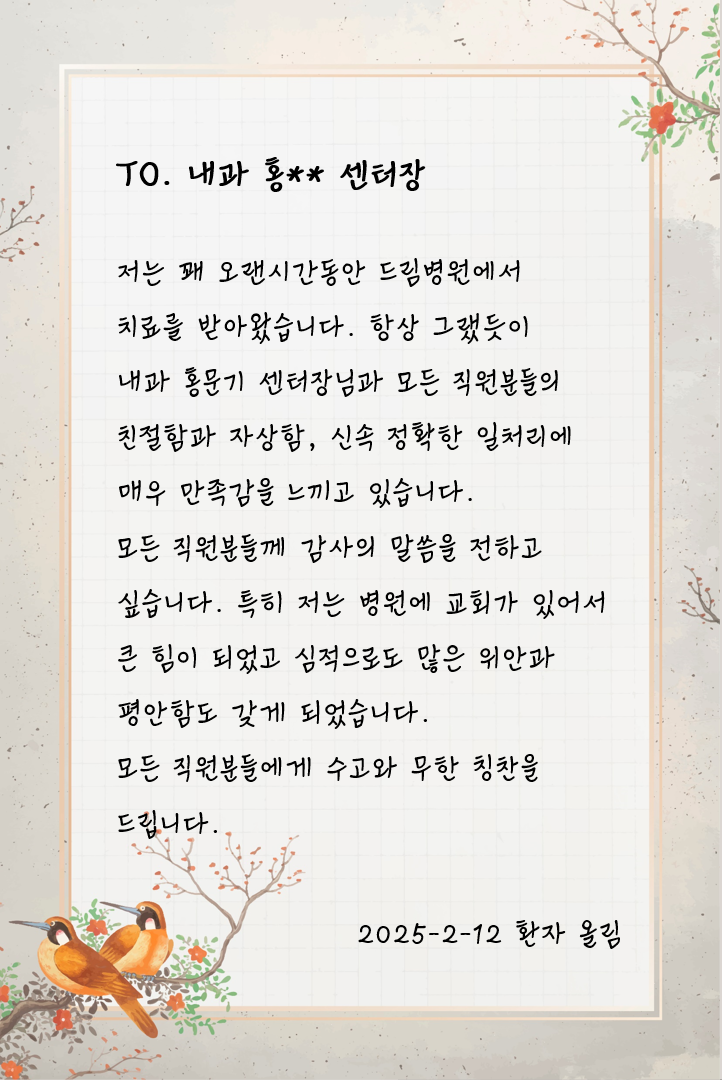 TO. 내과 홍** 센터장
저는 꽤 오랜시간동안 드림병원에서
치료를 받아왔습니다. 항상 그랬듯이
내과 홍문기 센터장님과 모든 직원분들의
친절함과 자상함, 신속 정확한 일처리에
매우 만족감을 느끼고 있습니다.
모든 직원분들께 감사의 말씀을 전하고
싶습니다. 특히 저는 병원에 교회가 있어서
큰 힘이 되었고 심적으로도 많은 위안과
평안함도 갖게 되었습니다.
모든 직원분들에게 수고와 무한 칭찬을
드립니다.
2025-2-12 환자 올림